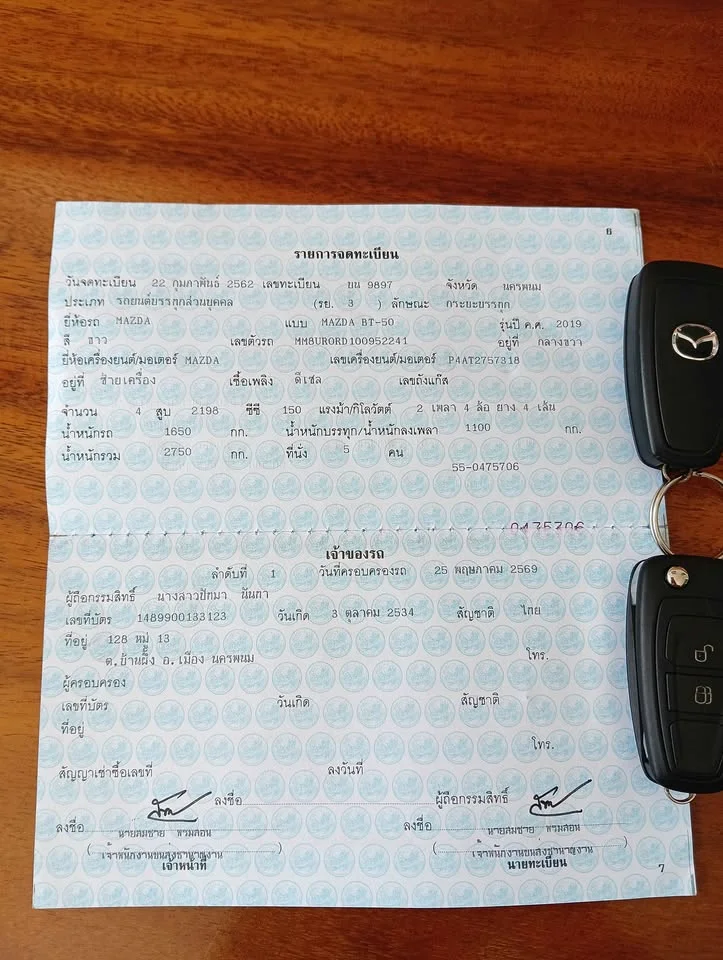 ย
รายการจดทะเบียน
วันจดทะเบียน 22 กุมภาพันธ์ 2562 เลขทะเบียน ยน 9897 จังหวัด นครพนม
ประเภท รถยนต์บรรทุกส่วนบุคคล (รย. 3 ) ลักษณะ กระบะบรรทุก
ยี่ห้อรถ MAZDA แบบ MAZDA BT-50 รุ่นปี ค.ศ. 2019
สี ขาว เลขตัวรถ MM8URORD100952241 อยู่ที่ กลางขวา
ยี่ห้อเครื่องยนต์/มอเตอร์ MAZDA เลขเครื่องยนต์/มอเตอร์ P4AT2757318
อยู่ที่ ซ้ายเครื่อง เชื้อเพลิง ดีเซล เลขถังแก๊ส
จำนวน 4 สูบ 2198 ซีซี 150 แรงม้า/กิโลวัตต์ 2 เพลา 4 ล้อ ยาง 4 เส้น
น้ำหนักรถ 1650 กก. น้ำหนักบรรทุก/น้ำหนักลงเพลา 1100 กก.
น้ำหนักรวม 2750 กก. ที่นั่ง 5 คน
55-0475706
เจ้าของรถ
ลำดับที่ 1 วันที่ครอบครองรถ 25 พฤษภาคม 2569
ผู้ถือกรรมสิทธิ์ นางสาวปัทมา
เลขที่บัตร 1489900133123 วันเกิด 3 ตุลาคม 2534 สัญชาติ ไทย
ที่อยู่ 128 หมู่ 13
ต.บ้านผึ้ง อ.เมือง นครพนม โทร.
ผู้ครอบครอง
เลขที่บัตร วันเกิด สัญชาติ
ที่อยู่
โทร.
สัญญาเช่าซื้อเลขที่ ลงวันที่
ลงชื่อ ผู้ถือกรรมสิทธิ์
ลงชื่อ ลงชื่อ
นายสมชาย พรมสอน นายสมชาย พรมสอน
( เจ้าพนักงานขนส่งชำนาญงาน ) ( เจ้าพนักงานขนส่งชำนาญงาน )
เจ้าหน้าที่ นายทะเบียน
7